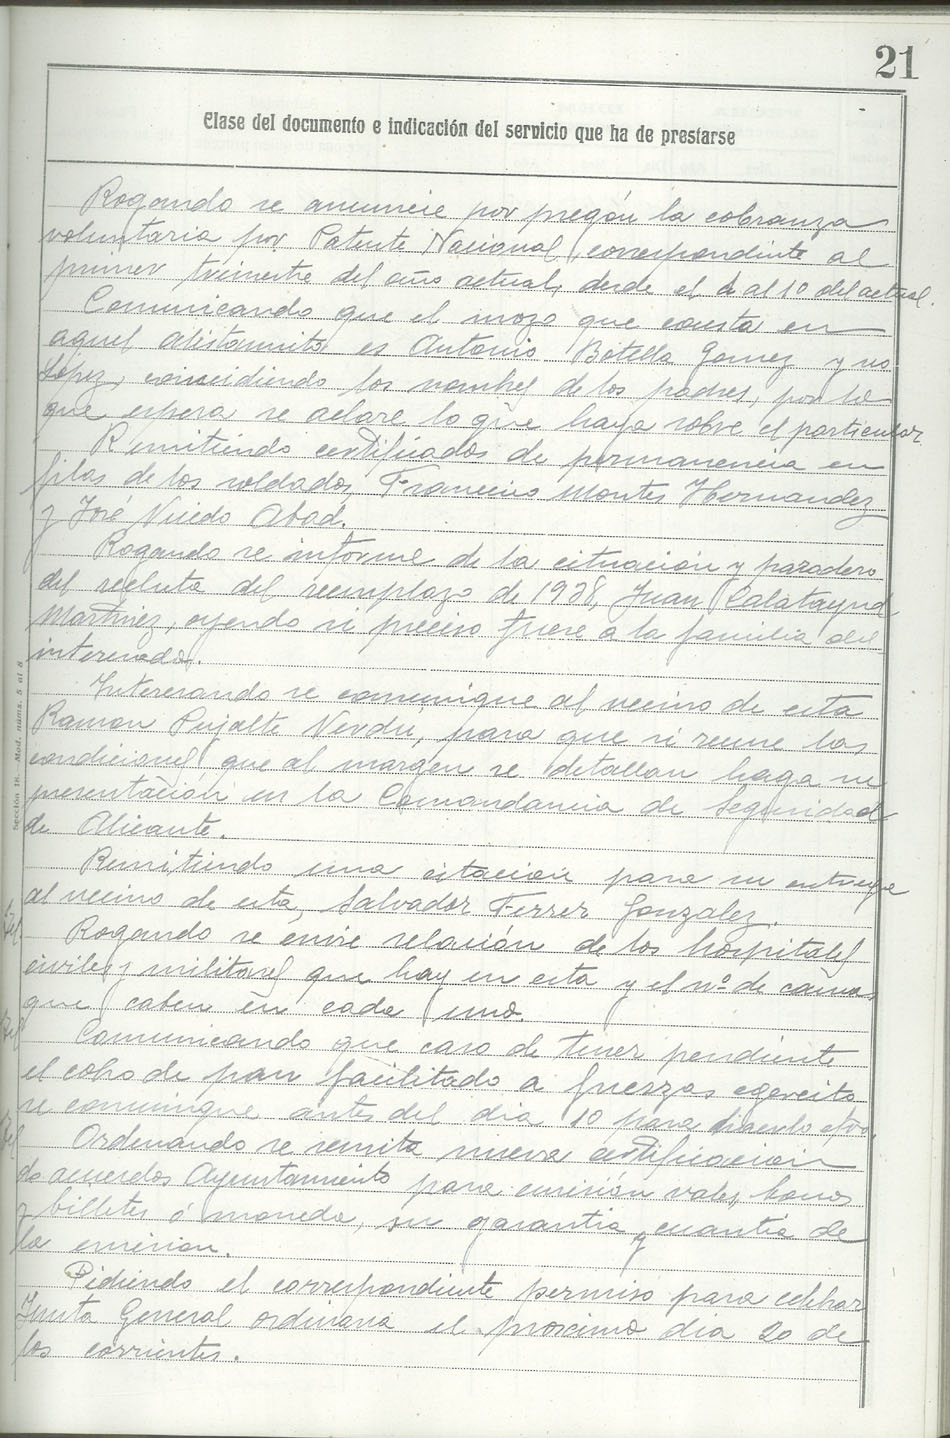 21
Clase del documento e indicación del servicio que ha de prestarse
Rogando se anuncie por pregón la cobranza
voluntaria por Patente Nacional, correspondiente al
primer trimestre del año actual, desde el al 10 del actual.
Comunicando que el mozo que consta en
aquel alistamiento es Antonio Botella Gomez y no
López, coincidiendo los nombres de los padres, por lo
que espera se aclare lo que haya sobre el particular
Remitiendo certificados de permanencia en
filas de los soldados, Francisco Montes Hernandez
y José Vicedo Abad.
Rogando se informe de la situación y paradero
del recluta del reemplazo de 1938, Juan Calatayud
Martinez, oyendo si preciso fuere a la familia del
interesado.
Interesando se comunique al vecino de esta
Ramon Pujalte Verdú, para que si reune las
condiciones que al margen se detallan haga su
presentación en la Comandancia de Seguridad
de Alicante.
Remitiendo una citacion para su entrega
al vecino de esta, Salvador Ferrer Gonzalez.
Rogando se envie relación de los hospitales
civiles y militares que hay en esta y el nº de camas
que caben en cada uno.
Comunicando que caso de tener pendiente
el cobro de pan facilitado a fuerzas egercito
se comunique antes del dia 10 para
Ordenando se remita nueva certificacion
de acuerdos Ayuntamiento para emisión vales, bonos
y billetes ó moneda, su garantia y cuantia de
la emision.
Pidiendo el correspondiente permiso para celebrar
Junta General ordinaria el proximo dia 20 de
los corrientes.
Sección 18.-Mod. núms. 5 al 8